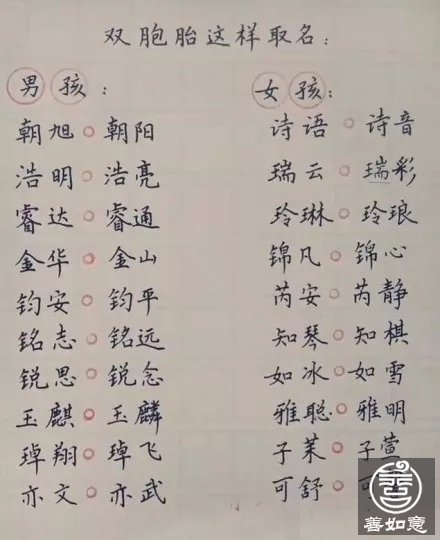 双胞胎这样取名:
男孩:
朝旭。朝阳
浩明。浩亮
睿达。睿通
金华。金山
钧安。钧平
铭志。铭远
锐思。锐念
玉麒。玉麟
琸翔。琸飞
亦文。亦武
女孩:
诗语。诗音
瑞云。瑞彩
玲琳。玲琅
锦凡。锦心
芮安。芮静
知琴。知棋
如冰。如雪
雅聪。雅明
子茉。子萱
可舒。可
善如意